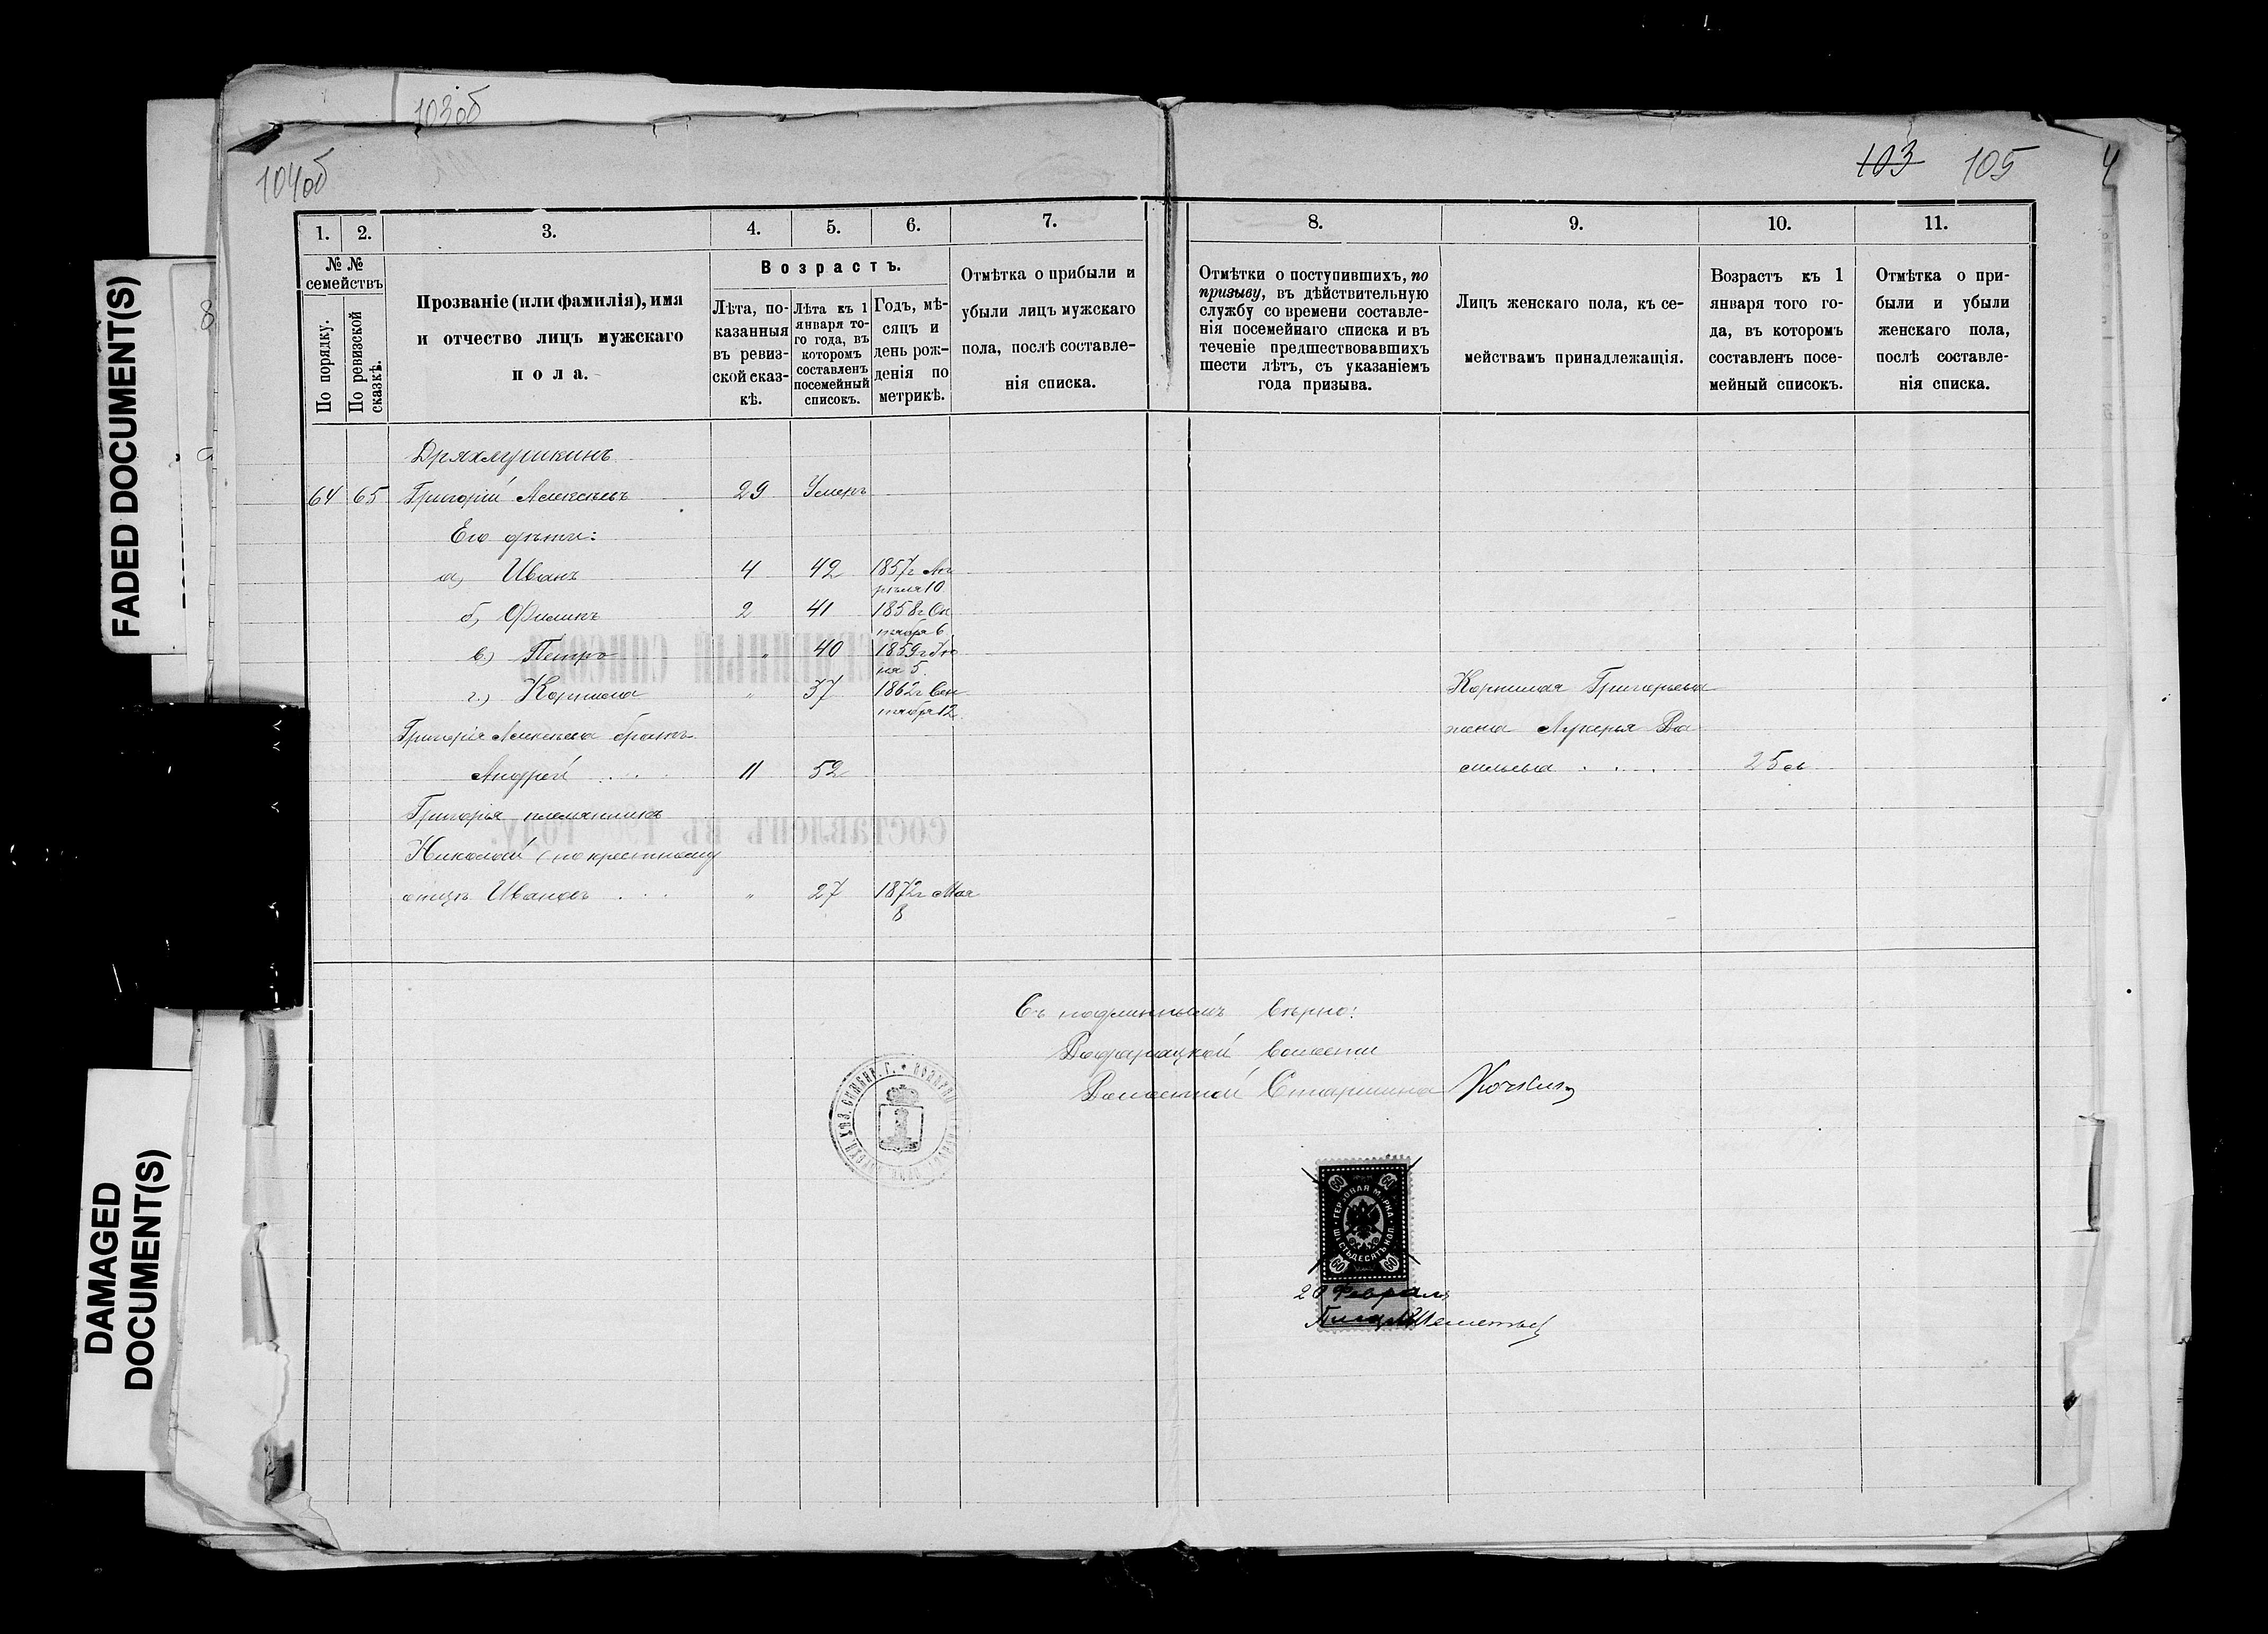 103об
104об
103 105
4
FADED DOCUMENT(S)
DAMAGED
DOCUMENT(S)
1. 2. 3. 4. 5. 6. 7. 8. 9. 10. 11.
№ № семействъ
По порядку.
По ревизской сказкѣ.
Прозваніе (или фамилія), имя
и отчество лицъ мужскаго
пола.
Возрастъ.
Лѣта, по-
казанныя
въ ревиз-
ской сказ-
кѣ.
Лѣта къ 1
января то-
го года, въ
которомъ
составленъ
посемейный
списокъ.
Годъ, мѣ-
сяцъ и
день рож-
денія по
метрикѣ.
Отмѣтка о прибыли и
убыли лицъ мужскаго
пола, послѣ составле-
нія списка.
Отмѣтки о поступившихъ, по
призыву, въ дѣйствительную
службу со времени составле-
нія посемейнаго списка и въ
теченіе предшествовавшихъ
шести лѣтъ, съ указаніемъ
года призыва.
Лицъ женскаго пола, къ се-
мействамъ принадлежащія.
Возрастъ къ 1
января того го-
да, въ которомъ
составленъ посе-
мейный списокъ.
Отмѣтка о при-
были и убыли
женскаго пола,
послѣ составле-
нія списка.
Дряхлушкинъ
64 65 Григорій Алексѣевъ 29 Умеръ
Его дѣти:
а) Иванъ 4 42 1857г Ап
рѣля 10
б) Филипъ 2 41 1858г Ок
тября 6
в.) Петръ " 40 1859г Ію
ня 5.
г.) Корнила " 37 1862г Сен
тября 12
Григорія Алексѣева братъ
Андрей . . . 11 52
Григорья племянникъ
Николай (по крестному
отцу Ивановъ . . . " 27 1872г Мая
8
Корнилая Григорьева
жена Лукерья Ва
сильева . . . 25
Съ подлиннымъ вѣрно:
волости
Волостной Старшина
ГЕРБОВАЯ МАРКА
ШЕСТЬДЕСЯТЪ КОП.
60 60
60 60
20 Февраля